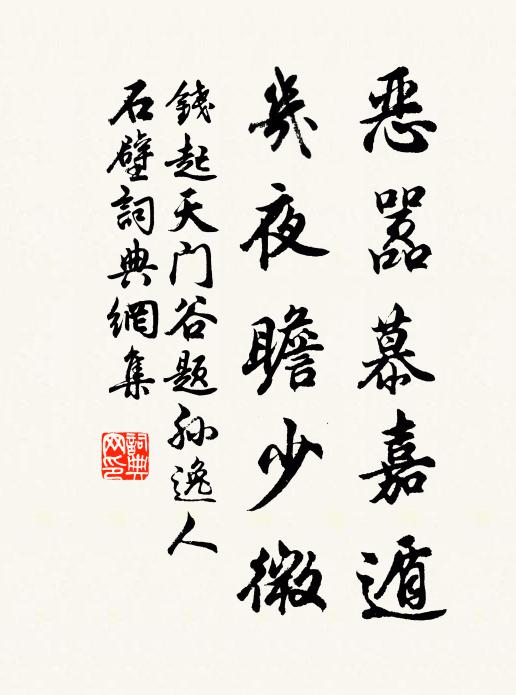 恶嚣慕嘉遁
几夜瞻少微
钱起天门谷题孙逸人
石壁詞典網集
詞典网印